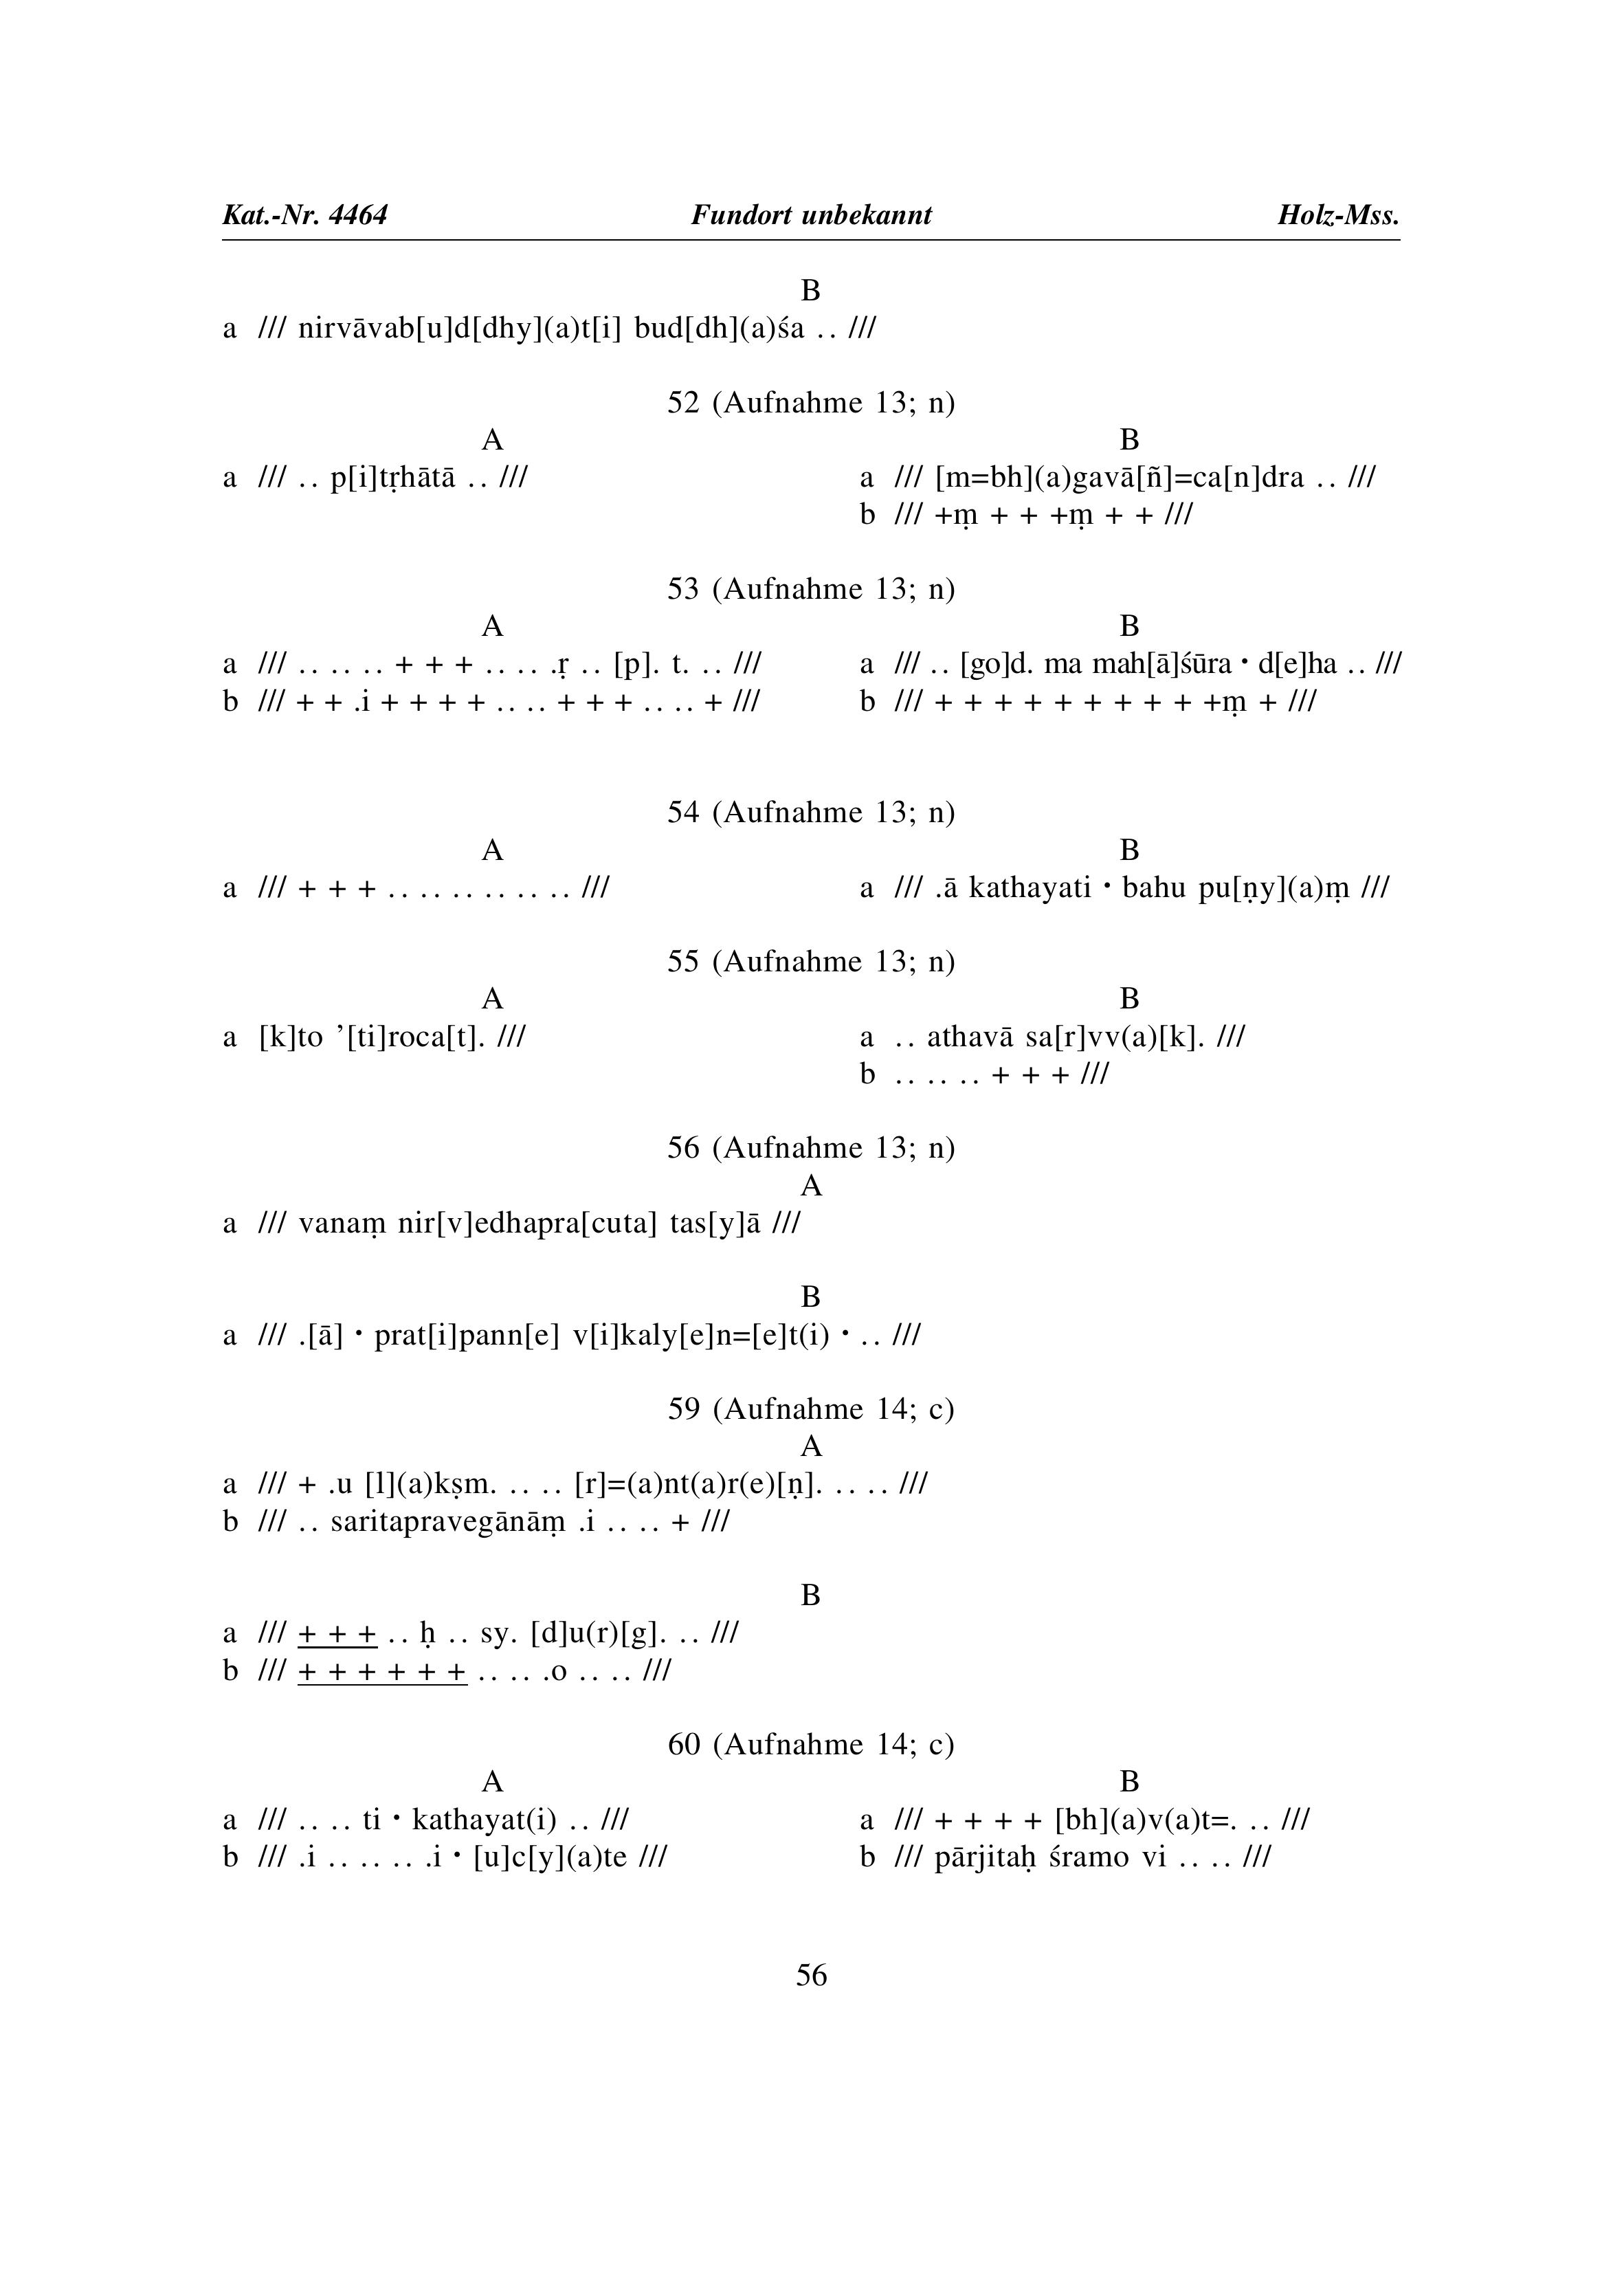 Kat.-Nr. 4464 Fundort unbekannt Holz-Mss.
B
a /// nirvāvab[u]d[dhy](a)t[i] bud[dh](a)śa .. ///
52 (Aufnahme 13; n)
A B
a /// .. p[i]tṛhātā .. /// a /// [m=bh](a)gavā[ñ]=ca[n]dra .. ///
b /// +ṃ + + +ṃ + + ///
53 (Aufnahme 13; n)
A B
a /// .. .. .. + + + .. .. .ṛ .. [p]. t. .. /// a /// .. [go]d. ma mah[ā]śūra • d[e]ha .. ///
b /// + + .i + + + + .. .. + + + .. .. + /// b /// + + + + + + + + + +ṃ + ///
54 (Aufnahme 13; n)
A B
a /// + + + .. .. .. .. .. .. /// a /// .ā kathayati • bahu pu[ṇy](a)ṃ ///
55 (Aufnahme 13; n)
A B
a [k]to ’[ti]roca[t]. /// a .. athavā sa[r]vv(a)[k]. ///
b .. .. .. + + + ///
56 (Aufnahme 13; n)
A
a /// vanaṃ nir[v]edhapra[cuta] tas[y]ā ///
B
a /// .[ā] • prat[i]pann[e] v[i]kaly[e]n=[e]t(i) • .. ///
59 (Aufnahme 14; c)
A
a /// + .u [l](a)kṣm. .. .. [r]=(a)nt(a)r(e)[ṇ]. .. .. ///
b /// .. saritapravegānāṃ .i .. .. + ///
B
a /// + + + .. ḥ .. sy. [d]u(r)[g]. .. ///
b /// + + + + + + .. .. .o .. .. ///
60 (Aufnahme 14; c)
A B
a /// .. .. ti • kathayat(i) .. /// a /// + + + + [bh](a)v(a)t=. .. ///
b /// .i .. .. .. .i • [u]c[y](a)te /// b /// pārjitaḥ śramo vi .. .. ///
56